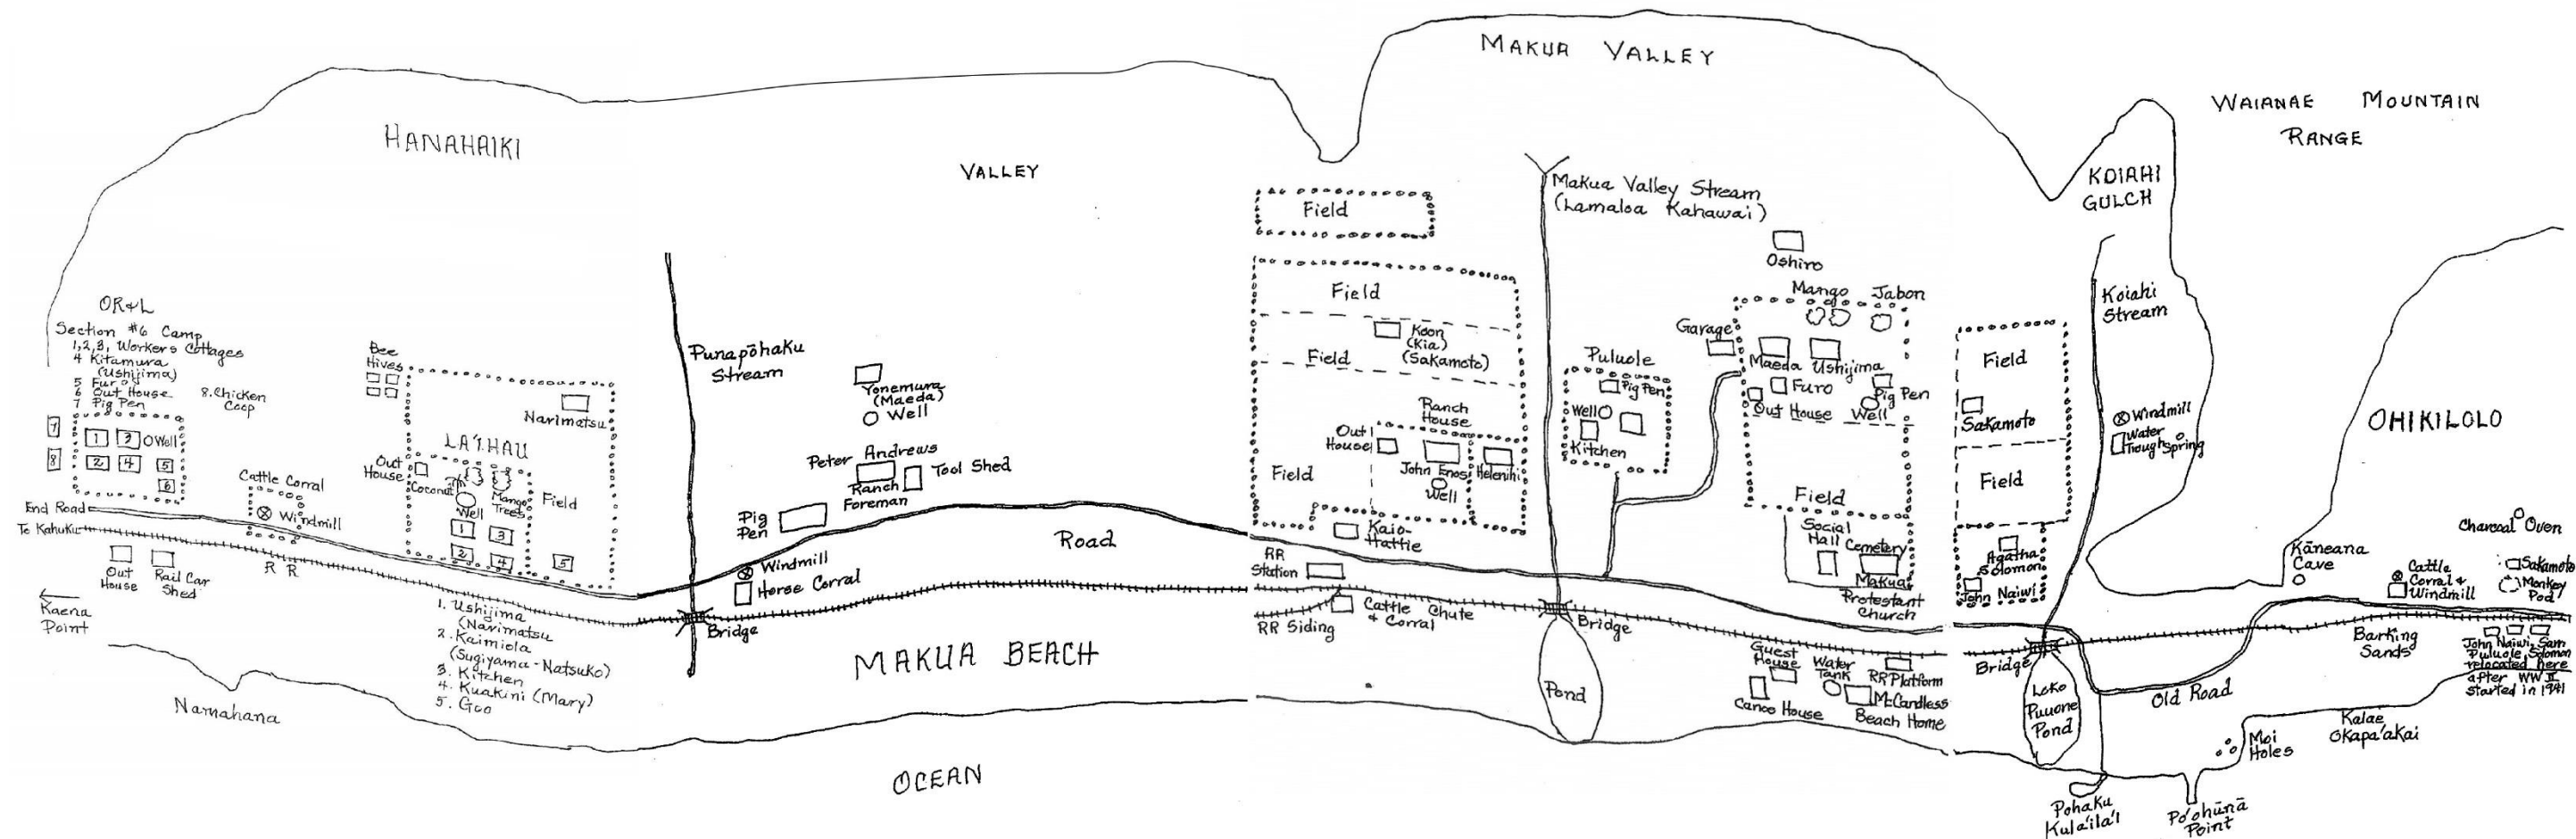 MAKUA VALLEY
WAIANAE MOUNTAIN
RANGE
HANAHAIKI
VALLEY
KOIAHI
GULCH
Makua Valley Stream
(Lamaloa Kahawai)
Field
Oshiro
OR&L
Section #6 Camp
1,2,3, Workers Cottages
4 Kitamura
(Ushijima)
5 Furo
6 Out House
7 Pig Pen
8. Chicken
Coop
7
8
1
3
O Well
2
4
5
6
End Road
To Kahuku
Out
House
Rail Car
Shed
R R
Kaena
Point
Namahana
Cattle Corral
Windmill
Bee
Hives
Narimatsu
LA'I HAU
Out
House
Coconut
Mango
Trees
Well
Field
1
3
2
4
5
1. Ushijima
(Narimatsu
2. Kaimiola
(Sugiyama-Natsuko)
3. Kitchen
4. Kuakini (Mary)
5. Goo
Punapōhaku
Stream
Yonemura
(Maeda)
Well
Peter Andrews
Ranch
Foreman
Tool Shed
Pig
Pen
Windmill
Horse Corral
Bridge
Road
MAKUA BEACH
OCEAN
Field
Koon
(Kia)
(Sakamoto)
Field
Ranch
House
Out
House
John Enos
Helenihi
Well
Field
Kaio-
Hattie
RR
Station
RR Siding
Cattle Chute
& Corral
Bridge
Pond
Puluole
Pig Pen
Well
Kitchen
Garage
Mango
Jabon
Maeda
Ushijima
Furo
Pig Pen
Out House
Well
Field
Social
Hall
Cemetery
Makua
Protestant
Church
Guest
House
Water
Tank
RR Platform
McCandless
Beach Home
Canoe House
Field
Sakamoto
Field
Agatha
Solomon
John Naiwi
Koiahi
Stream
Windmill
Water
Trough
Spring
Bridge
Loko
Puuone
Pond
Old Road
Pohaku
Kula'ila'i
Po'ohūnā
Point
Moi
Holes
Kalae
Okapa'akai
OHIKILOLO
Kāneana
Cave
Charcoal Oven
Cattle
Corral &
Windmill
Sakamoto
Monkey
Pod
Barking
Sands
John Naiwi, Sam
Puluole, Solomon
relocated here
after WW II
started in 1941